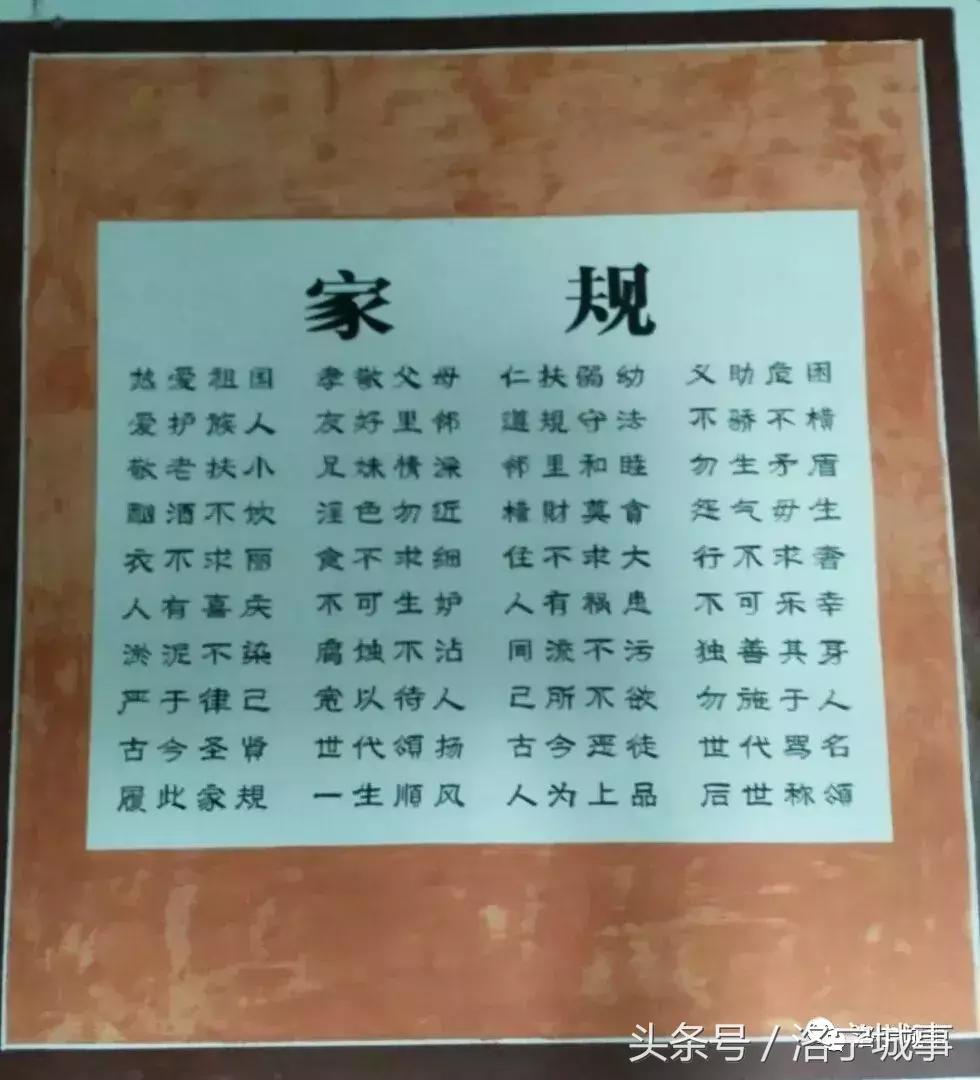 家 规
热爱祖国 孝敬父母 仁扶弱幼 义助危困
爱护族人 友好里邻 遵规守法 不骄不横
敬老扶小 兄妹情深 邻里和睦 勿生矛盾
酗酒不饮 淫色勿近 横财莫贪 怨气毋生
衣不求丽 食不求细 住不求大 行不求奢
人有喜庆 不可生妒 人有祸患 不可乐幸
淤泥不染 腐蚀不沾 同流不污 独善其身
严于律己 宽以待人 己所不欲 勿施于人
古今圣贤 世代颂扬 古今恶徒 世代骂名
履此家规 一生顺风 人为上品 后世称颂
头条号 / 洛宁城事